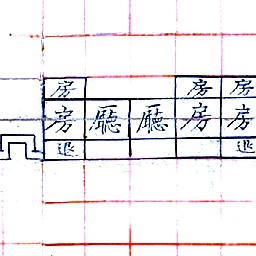 房 房 房
房 廳 廳 房 房
退 退